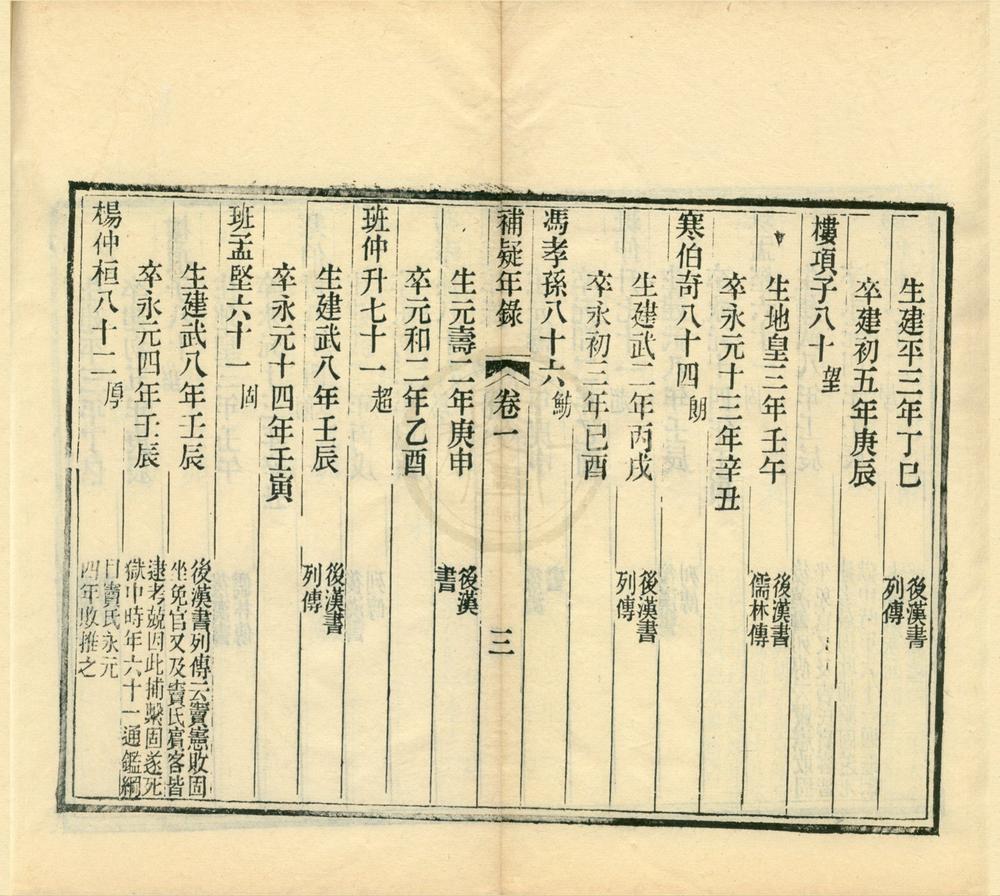 生建平三年丁巳
後漢書
列傳
卒建初五年庚辰
樓項子八十 望
生地皇三年壬午
後漢書
儒林傳
卒永元十三年辛丑
寒伯奇八十四 朗
生建武二年丙戌
後漢書
列傳
卒永初三年己酉
馮孝孫八十六 魴
補疑年錄 卷一 三
生元壽二年庚申
後漢
書
卒元和二年乙酉
班仲升七十一 超
生建武八年壬辰
後漢書
列傳
卒永元十四年壬寅
班孟堅六十一 固
生建武八年壬辰
後漢書列傳云竇憲敗固
坐免官又及竇氏賓客皆
逮考兢因此捕繫固遂死
獄中時年六十一通鑑綱
目竇氏永元
四年敗推之
卒永元四年壬辰
楊仲桓八十二 厚